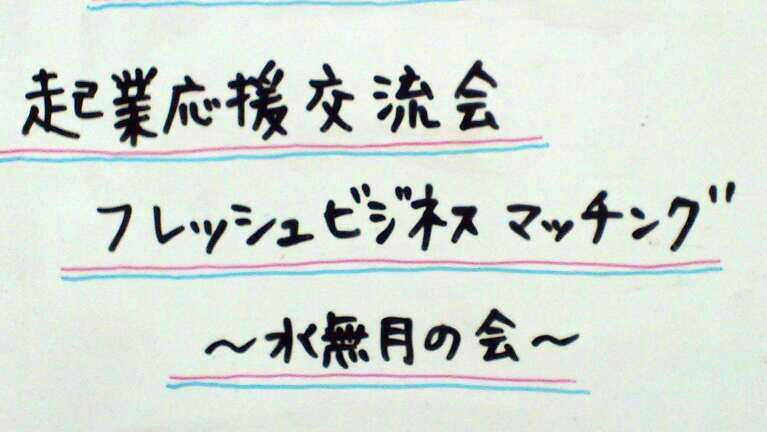 起業応援交流会
フレッシュビジネスマッチング
～水無月の会～